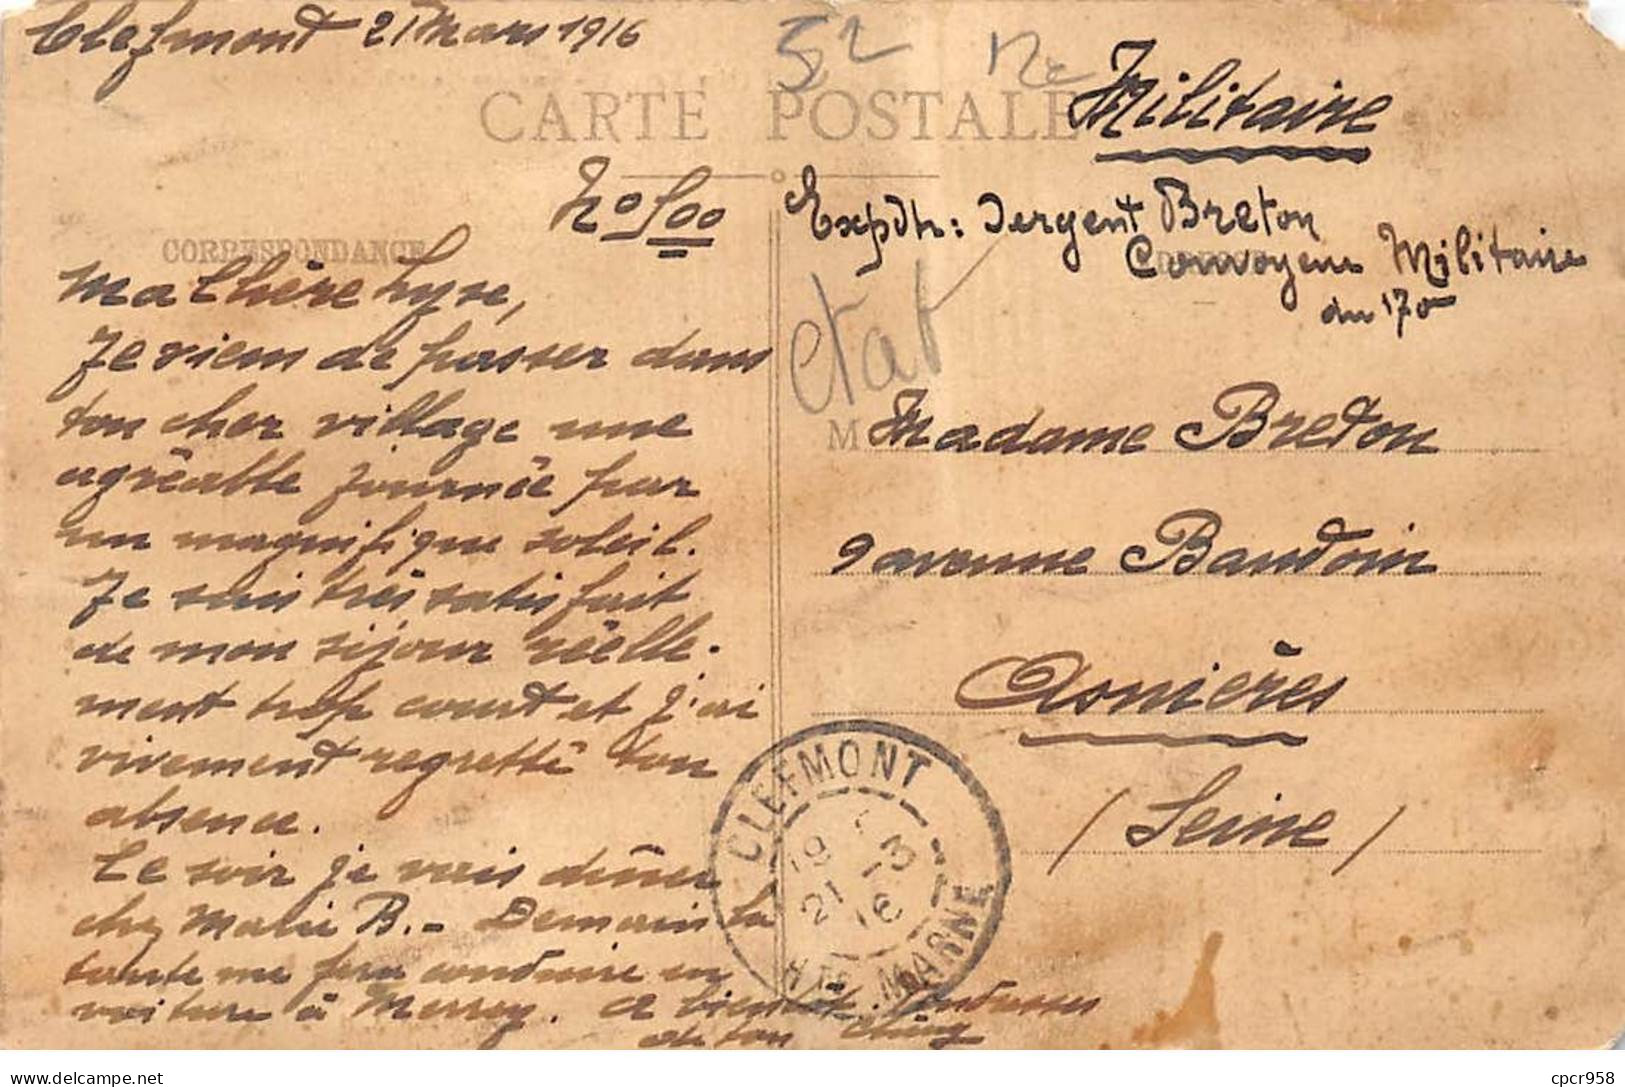 Clefmont 21 Mars 1916
52
CARTE POSTALE
Militaire
No 500
Expdtr: Sergent Breton
Convoyeur Militaire
du 170
CORRESPONDANCE
Ma Chère Lyse,
Je viens de passer dans
ton cher village une
agréable journée par
un magnifique soleil.
Je suis très satisfait
de mon séjour réelle-
ment trop court et j'ai
vivement regretté ton
absence.
Le soir je vais dîner
chez Marie B. - Demain la
tante me fera conduire en
voiture à Merrey. A bientôt.
de ton
état
M Madame Breton
9 avenue Baudoin
Asnières
(Seine)
CLEFMONT
19
21 -3
16
HTE MARNE
delcampe.net
cpcr958